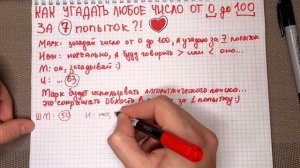 КАК УГАДАТЬ ЛЮБОЕ ЧИСЛО ОТ 0 ДО 100
ЗА 7 ПОПЫТОК?!
Марк: загадай число от 0 до 100, я угадаю за 7 попыток
Иван: нереально... я буду говорить > или < оно...
М: ок, загадывай :)
И: ... 63
Марк будет использовать алгоритм поиска...
это сокращать область в раза за 1 попытку :)
М: 50 И: нет,